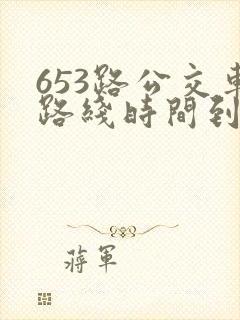 653路公交車
路綫時間到
蔣軍